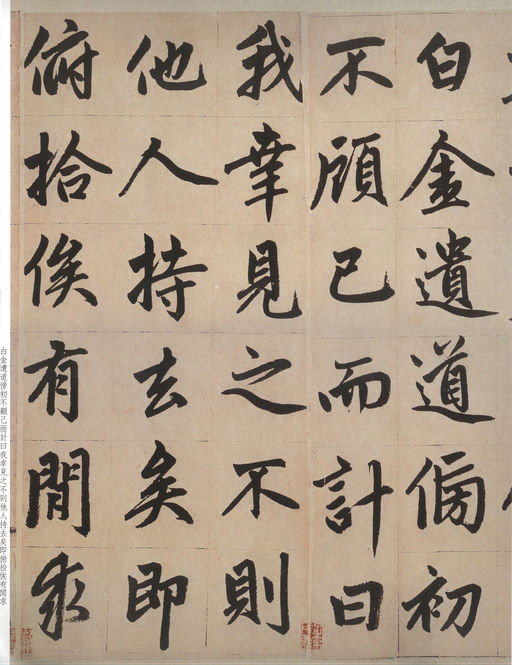 白金遺道傍初
不顧已而計曰
我幸見之不則
他人持去矣即
俯拾俟有聞求
白金遺道傍初不顧已而計曰我幸見之不則他人持去矣即俯拾俟有聞求